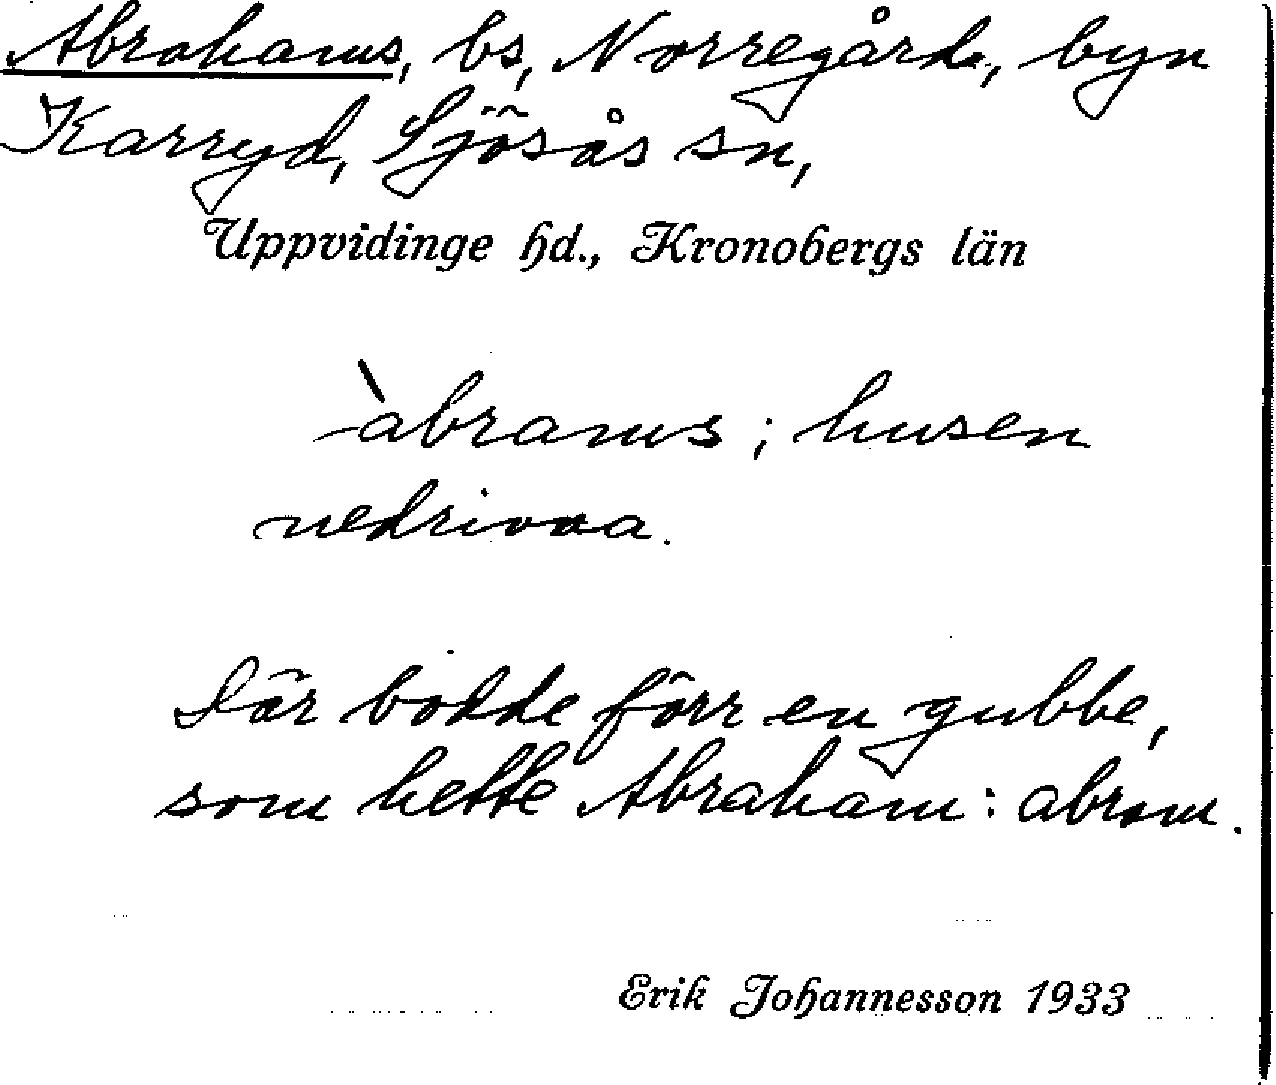 Abrahams, bs, Norregård, byn
Karryd, Sjösås sn,
Uppvidinge hd., Kronobergs län
àbrams; husen
nedrivna.
Där bodde förr en gubbe,
som hette Abraham: abram.
Erik Johannesson 1933